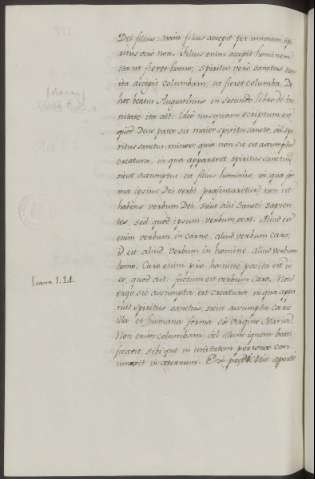 Dei filius: nam filius accepit per unionem, spi
ritus vero non. Filius enim accepit hominem
ita ut fieret homo, spiritus vero sanctus non
ita accepit columbam, ut fieret columba. De
hoc beatus Augustinus in secundo libro de tri
nitate ita ait. Ideo nusquam scriptum est,
quod Deus pater sit maior spiritu sancto, vel spi
ritus sanctus minor quia non sic est assumpta
creatura, in qua appareret spiritus sanctus
sicut assumptus est filius hominis, in qua for
ma ipsius Dei verbi praesentaretur, non ut
haberet verbum Dei, sicut alii sancti sapien
tes, sed quod ipsum verbum erat. Aliud est
enim verbum in carne, aliud verbum caro,
id est aliud verbum in homine aliud verbum
homo. Caro enim pro homine posita est in
eo, quod ait: factum est verbum caro. Non
ergo sic assumpta est creatura, in qua appa
ruit spiritus sanctus, sicut assumpta caro
illa et humana forma ex virgine Maria.
Non enim columbam vel illum ignem beati
ficavit, sibique in unitatem personae con
iunxit in aeternum.
Ioann. 1. 14.